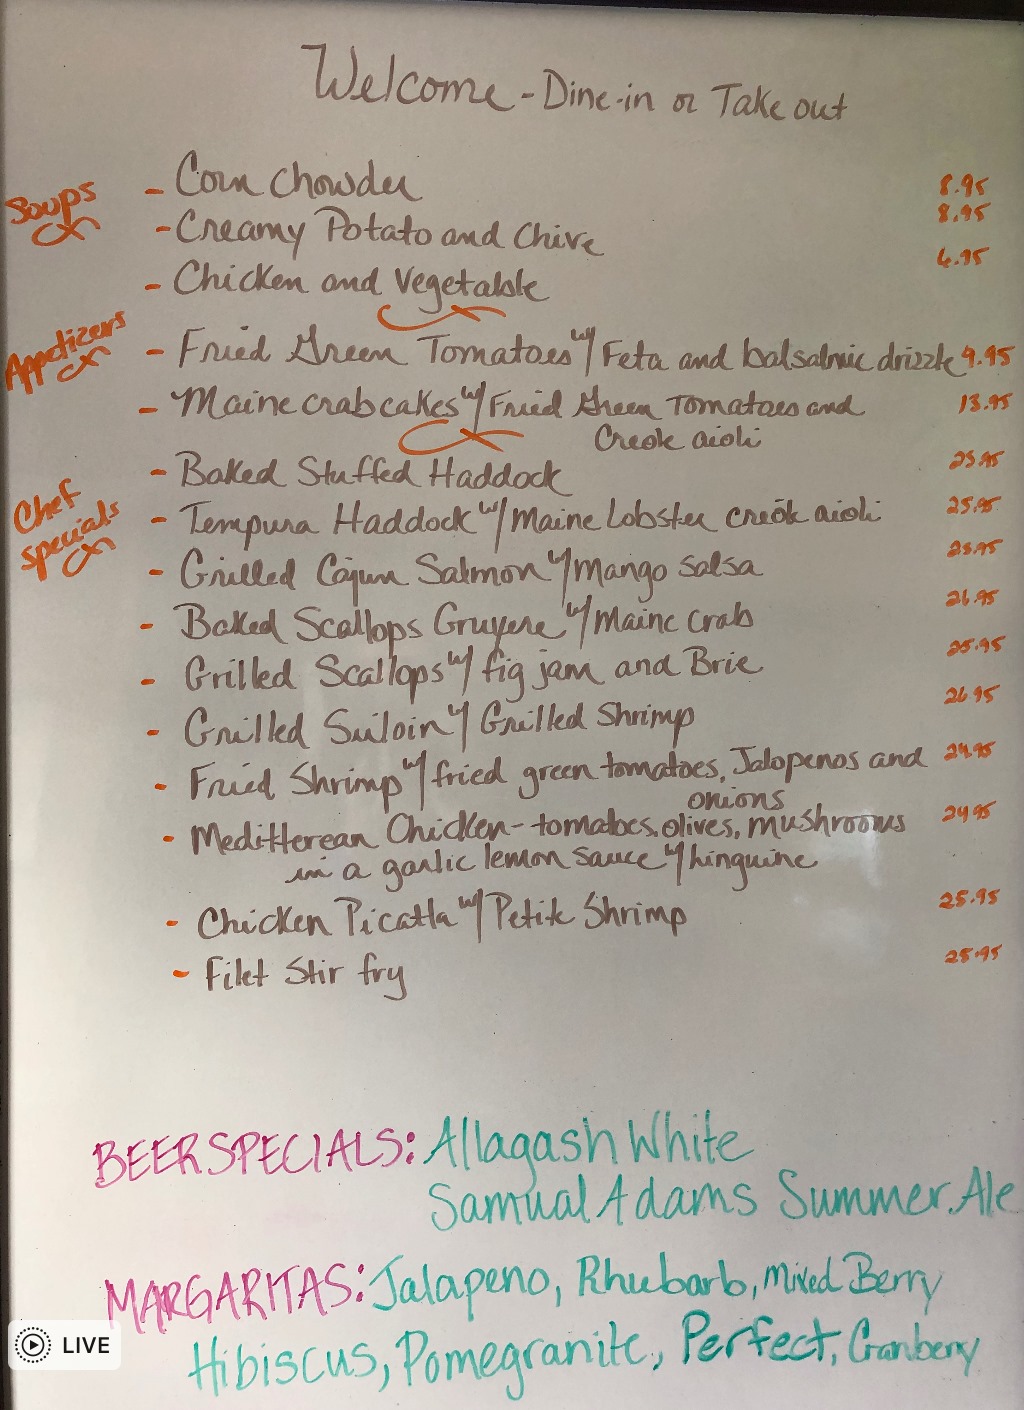 Welcome - Dine-in or Take out
Soups
- Corn Chowder 8.95
- Creamy Potato and Chive 8.95
- Chicken and Vegetable 6.95
Appetizers
- Fried Green Tomatoes w/ Feta and balsalmic drizzle 9.95
- Maine crabcakes w/ Fried Green Tomatoes and 13.95
Creole aioli
Chef
specials
- Baked Stuffed Haddock 25.95
- Tempura Haddock w/ Maine Lobster creole aioli 25.95
- Grilled Cajun Salmon w/ Mango Salsa 25.95
- Baked Scallops Gruyere w/ Maine crab 26.95
- Grilled Scallops w/ fig jam and Brie 25.95
- Grilled Sirloin w/ Grilled Shrimp 26.95
- Fried Shrimp w/ fried green tomatoes, Jalopenos and 24.95
onions
- Meditterean Chicken - tomatoes, olives, mushrooms 24.95
in a garlic lemon sauce w/ linguine
- Chicken Picatta w/ Petite Shrimp 25.95
- Filet Stir fry 25.95
BEER SPECIALS: Allagash White
Samual Adams Summer Ale
MARGARITAS: Jalapeno, Rhubarb, Mixed Berry
LIVE
Hibiscus, Pomegranite, Perfect, Cranberry